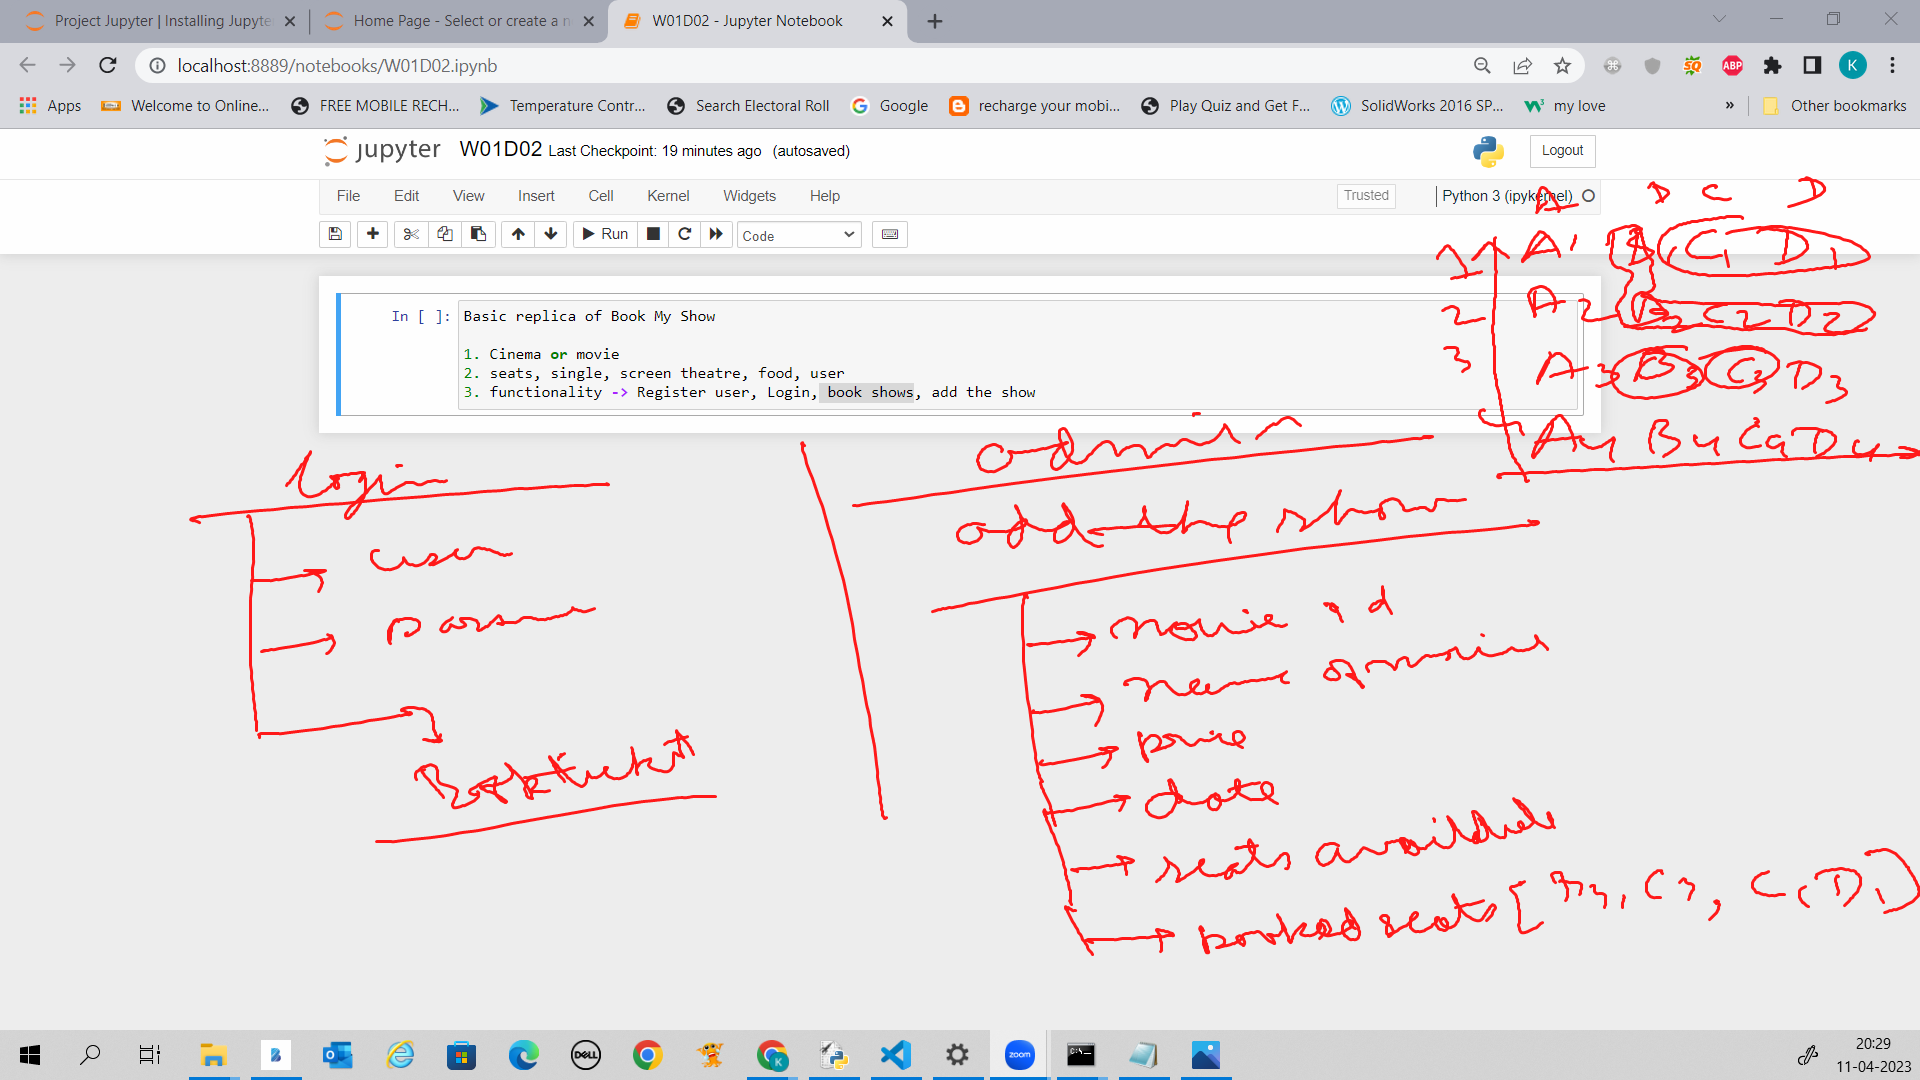 Project Jupyter | Installing Jupyte
Home Page - Select or create a n
W01D02 - Jupyter Notebook
localhost:8889/notebooks/W01D02.ipynb
K
Apps
Welcome to Online...
FREE MOBILE RECH...
Temperature Contr...
Search Electoral Roll
Google
recharge your mobi...
Play Quiz and Get F...
SolidWorks 2016 SP...
my love
»
Other bookmarks
jupyter W01D02 Last Checkpoint: 19 minutes ago (autosaved)
Logout
File Edit View Insert Cell Kernel Widgets Help
Trusted
Python 3 (ipykernel)
Run
Code
In [ ]:
Basic replica of Book My Show
1. Cinema or movie
2. seats, single, screen theatre, food, user
3. functionality -> Register user, Login, book shows, add the show
A B C D
1 A1 B1 C1 D1
2 A2 B2 C2 D2
3 A3 B3 C3 D3
4 A4 B4 C4 D4
login
user
Book ticket
admin
add the show
movie id
name of movie
price
date
seats available
booked seats [ C3, C1 D1 ]
zoom
DELL
ABP
20:29
11-04-2023